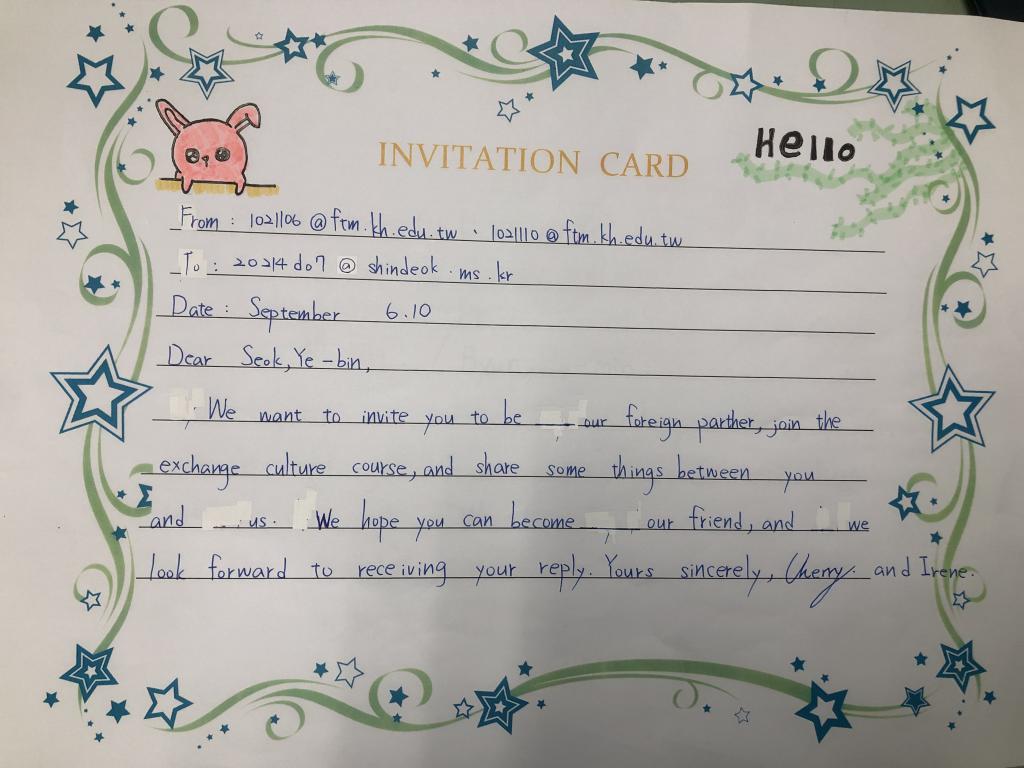 INVITATION CARD
Hello
From : 1021106 @ftm.kh.edu.tw 、 1021110@ftm.kh.edu.tw
To : 20214do7 @ shindeok.ms.kr
Date : September 6.10
Dear Seok, Ye-bin,
We want to invite you to be our foreign parther, join the
exchange culture course, and share some things between you
and us. We hope you can become our friend, and we
look forward to receiving your reply. Yours sincerely, Cherry. and Irene.